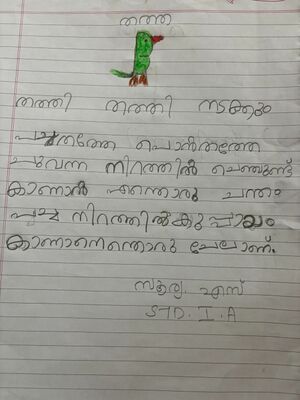 തത്ത
തത്തി തത്തി നടക്കും
പച്ചതത്തേ പൊൻതത്തേ
ചുവന്ന നിറത്തിൽ ചെഞ്ചുണ്ട്
കാണാൻ എന്തൊരു ചന്തം
പച്ച നിറത്തിൽ കുപ്പായം
കാണാനെന്തൊരു ചേലാണ്.
സൂര്യ. എസ്
STD. I. A